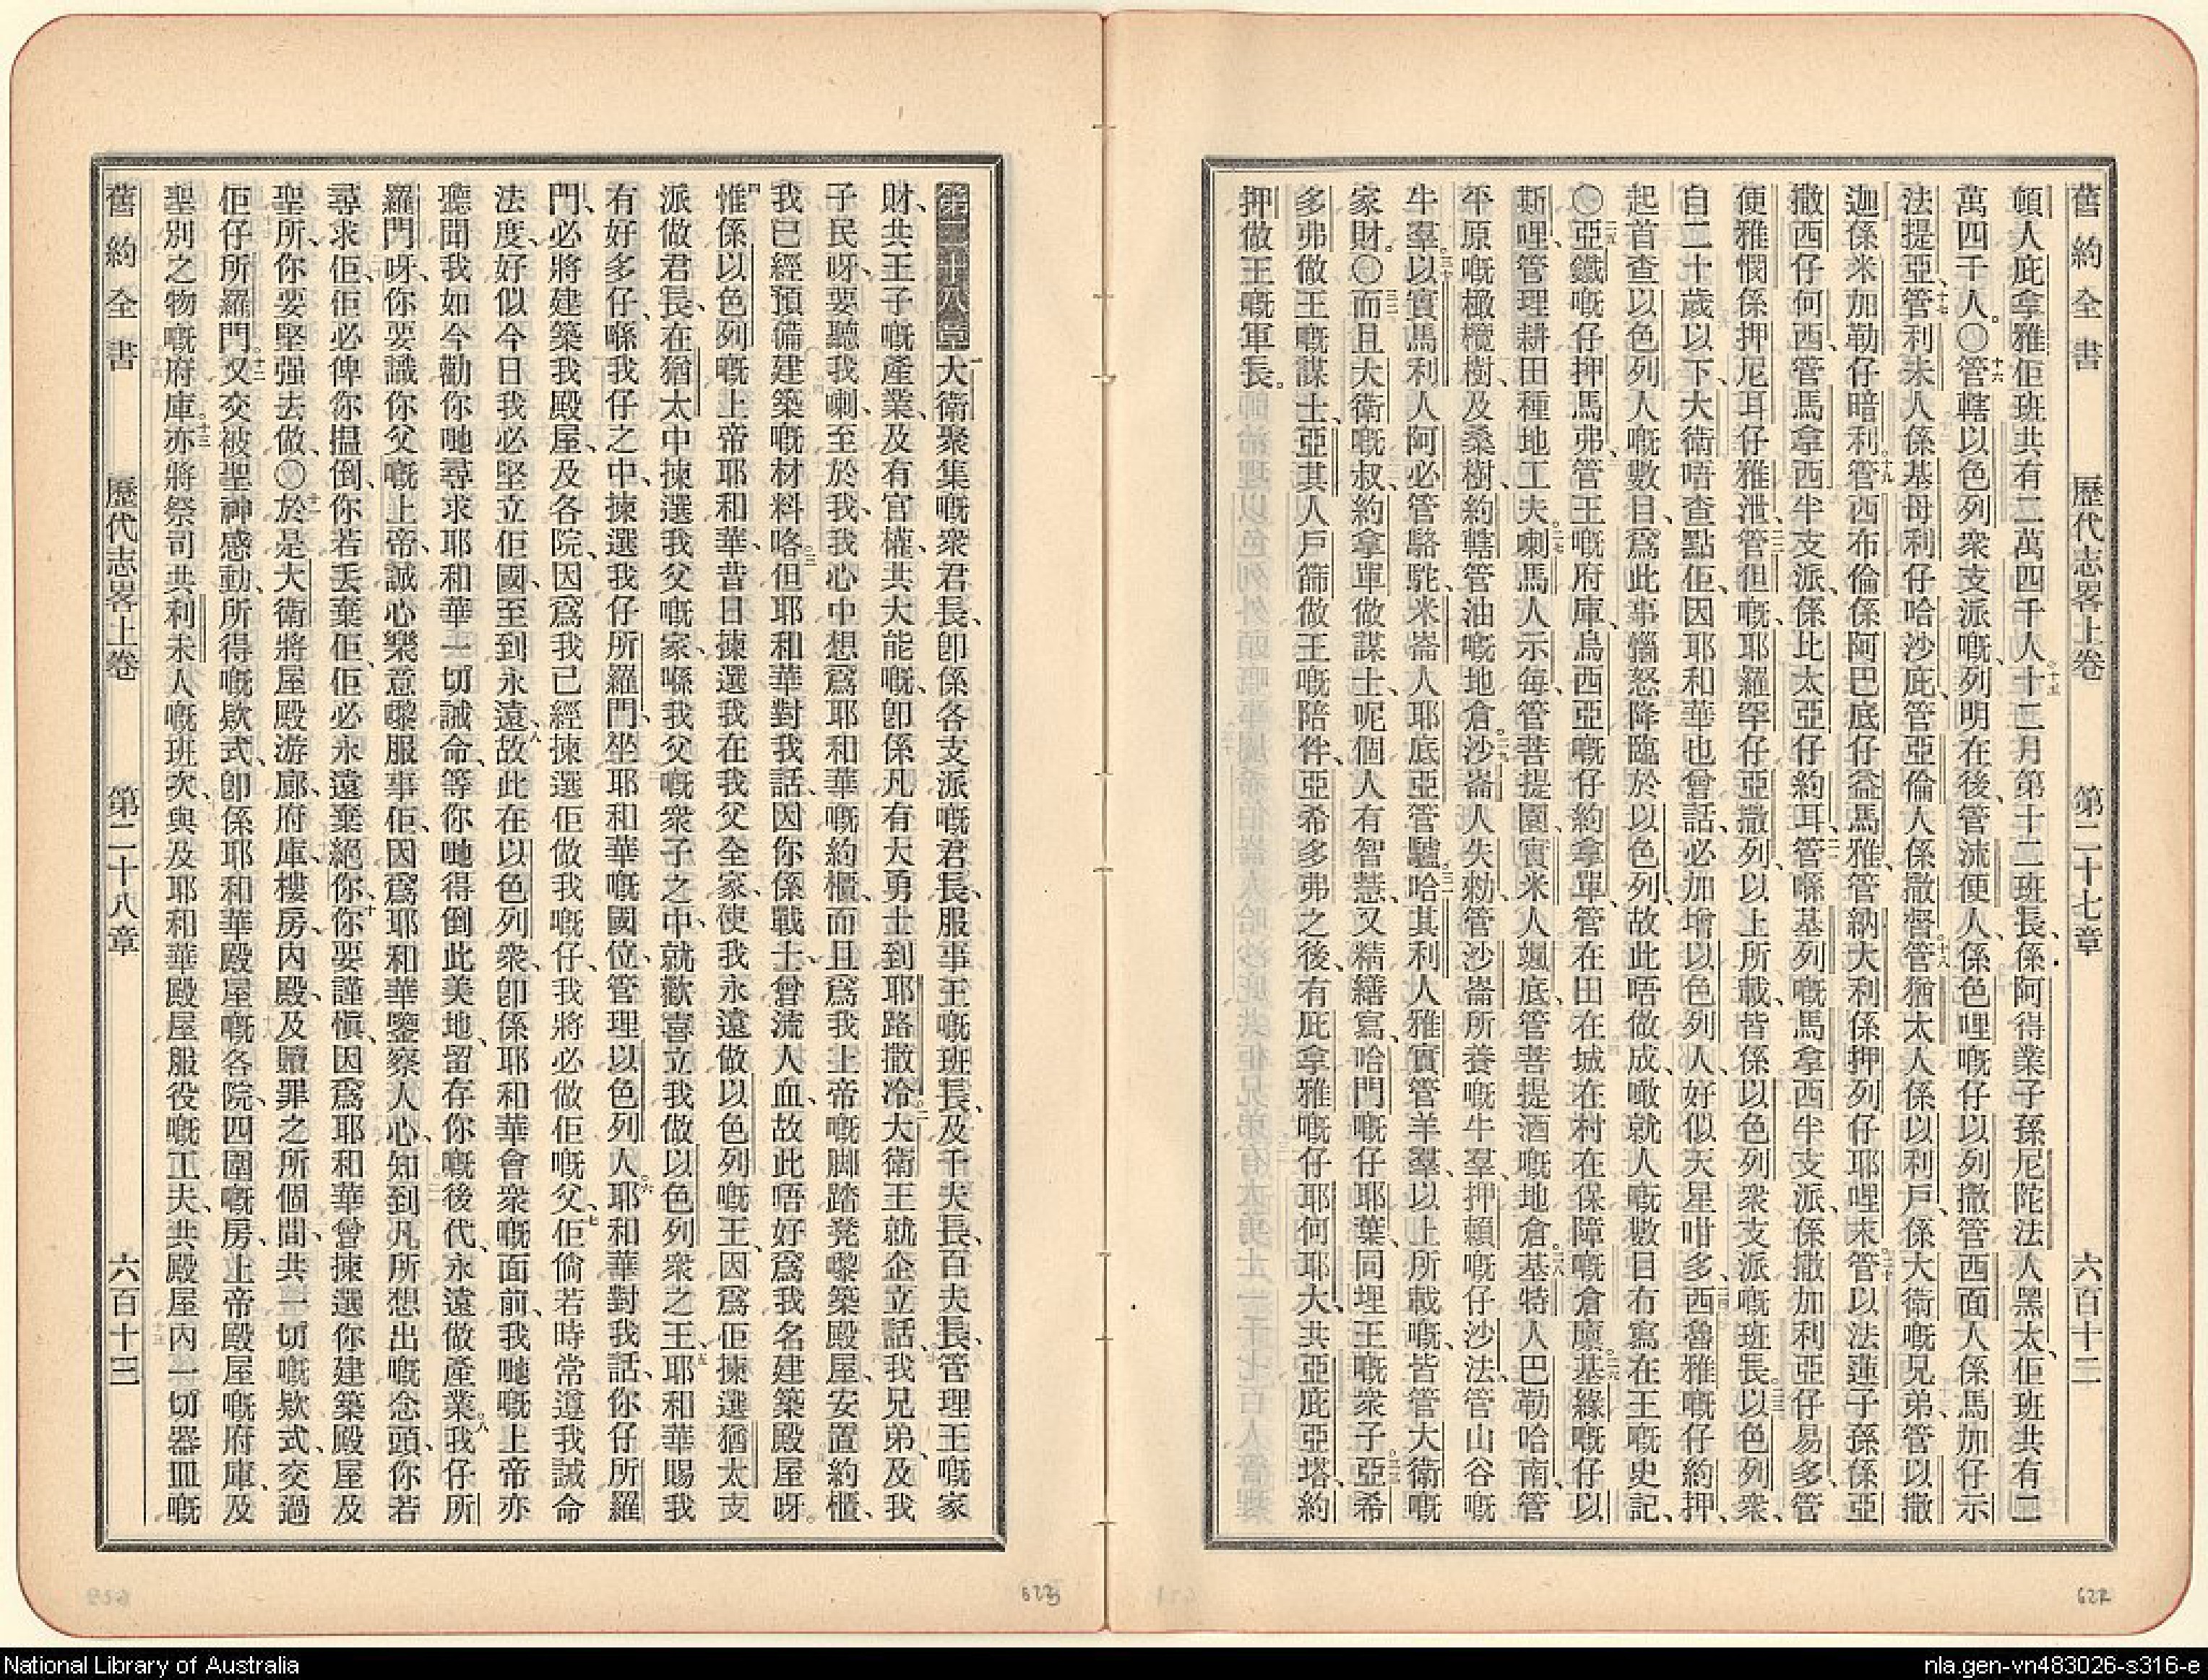 舊約全書 歷代志畧上卷 第二十七章 六百十二
頓人庇拿雅佢班共有二萬四千人十五十二月第十二班長係阿得業子孫尼陀法人黑太佢班共有二
萬四千人〇十六管轄以色列衆支派嘅列明在後管流便人係色哩嘅仔以列撒管西面人係馬加仔示
法提亞十七管利未人係基母利仔哈沙庇管亞倫人係撒督十八管猶太人係以利戶係大衛嘅兄弟管以撒
迦係米加勒仔暗利十九管西布倫係阿巴底仔益馬雅管納大利係押列仔耶哩末二十管以法蓮子孫係亞
撒西仔何西管馬拿西半支派係比太亞仔約耳二一管喺基列嘅馬拿西半支派係撒加利亞仔易多管
便雅憫係押尼耳仔雅泄二二管但嘅耶羅罕仔亞撒列以上所載皆係以色列衆支派嘅班長二三以色列衆
自二十歲以下大衛唔查點佢因耶和華也曾話必加增以色列人好似天星咁多二四西魯雅嘅仔約押
起首查以色列人嘅數目爲此事惱怒降臨於以色列故此唔做成噉就人嘅數目冇寫在王嘅史記
〇二五亞鐵嘅仔押馬弗管王嘅府庫烏西亞嘅仔約拿單管在田在城在村在保障嘅倉廩二六基緣嘅仔以
斯哩管理耕田種地工夫二七喇馬人示每管菩提園實米人颯底管菩提酒嘅地倉二八基特人巴勒哈南管
平原嘅橄欖樹及桑樹約轄管油嘅地倉二九沙崙人失勑管沙崙所養嘅牛羣押賴嘅仔沙法管山谷嘅
牛羣三十以實馬利人阿必管駱駝米崙人耶底亞管驢三一哈其利人雅實管羊羣以上所載嘅皆管大衛嘅
家財〇三二而且大衛嘅叔約拿單做謀士呢個人有智慧又精繕寫哈門嘅仔耶葉同埋王嘅衆子三三亞希
多弗做王嘅謀士亞其人戶篩做王嘅陪伴三四亞希多弗之後有庇拿雅嘅仔耶何耶大共亞庇亞塔約
押做王嘅軍長
第二十八章 一大衛聚集嘅衆君長卽係各支派嘅君長服事王嘅班長及千夫長百夫長管理王嘅家
財共王子嘅產業及有官權共大能嘅卽係凡有大勇士到耶路撒冷二大衛王就企立話我兄弟及我
子民呀要聽我喇至於我我心中想爲耶和華嘅約櫃而且爲我上帝嘅脚踏凳嚟築殿屋安置約櫃
我已經預備建築嘅材料咯三但耶和華對我話因你係戰士曾流人血故此唔好爲我名建築殿屋呀
四惟係以色列嘅上帝耶和華昔日揀選我在我父全家使我永遠做以色列嘅王因爲佢揀選猶太支
派做君長在猶太中揀選我父嘅家喺我父嘅衆子之中就歡喜立我做以色列衆之王五耶和華賜我
有好多仔喺我仔之中揀選我仔所羅門坐耶和華嘅國位管理以色列人六耶和華對我話你仔所羅
門必將建築我殿屋及各院因爲我已經揀選佢做我嘅仔我將必做佢嘅父七佢倘若時常遵我誡命
法度好似今日我必堅立佢國至到永遠八故此在以色列衆卽係耶和華會衆嘅面前我哋嘅上帝亦
聽聞我如今勸你哋尋求耶和華一切誡命等你哋得倒此美地留存你嘅後代永遠做產業八我仔所
羅門呀你要識你父嘅上帝誠心樂意嚟服事佢因爲耶和華鑒察人心知到凡所想出嘅念頭你若
尋求佢佢必俾你揾倒你若丢棄佢佢必永遠棄絕你十你要謹愼因爲耶和華曾揀選你建築殿屋及
聖所你要堅强去做〇十一於是大衛將屋殿游廊府庫樓房內殿及贖罪之所個間共一切嘅欵式交過
佢仔所羅門十二又交被聖神感動所得嘅欵式卽係耶和華殿屋嘅各院四圍嘅房上帝殿屋嘅府庫及
聖別之物嘅府庫十三亦將祭司共利未人嘅班次與及耶和華殿屋服役嘅工夫共殿屋內一切器皿嘅
舊約全書 歷代志畧上卷 第二十八章 六百十三
623
622
National Library of Australia
nla.gen-vn483026-s316-e